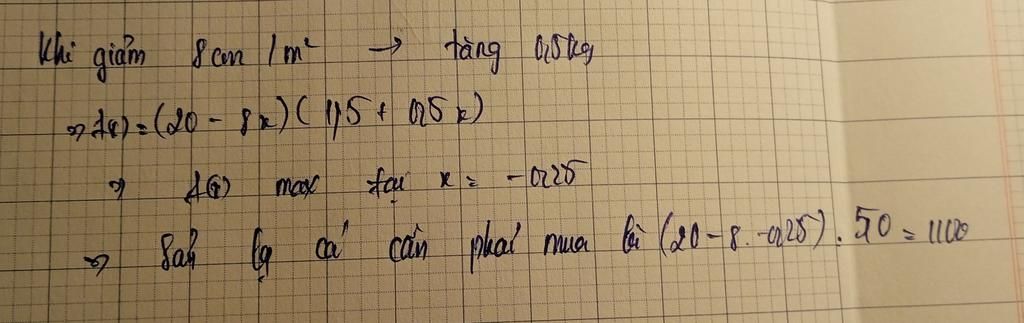 Khi giảm 8 con / m² → tăng 0,5 kg
⇒ f(x) = (20 - 8x)(1,5 + 0,5x)
⇒ f(x) max tại x = -0,25
⇒ Sản lg cá cần phải mua là (20 - 8 . -0,25) . 50 = 1100